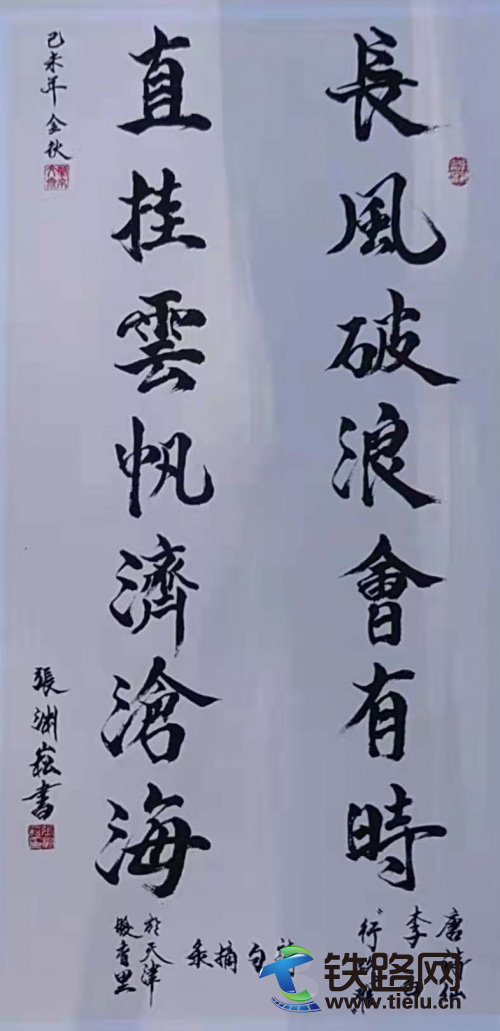 長風破浪會有時
直挂雲帆濟滄海
唐詩仙
李白
"行路難"
詩句摘錄
於天津
馥香里
己未年金秋
張淵崧書
铁路网
www.tielu.cn